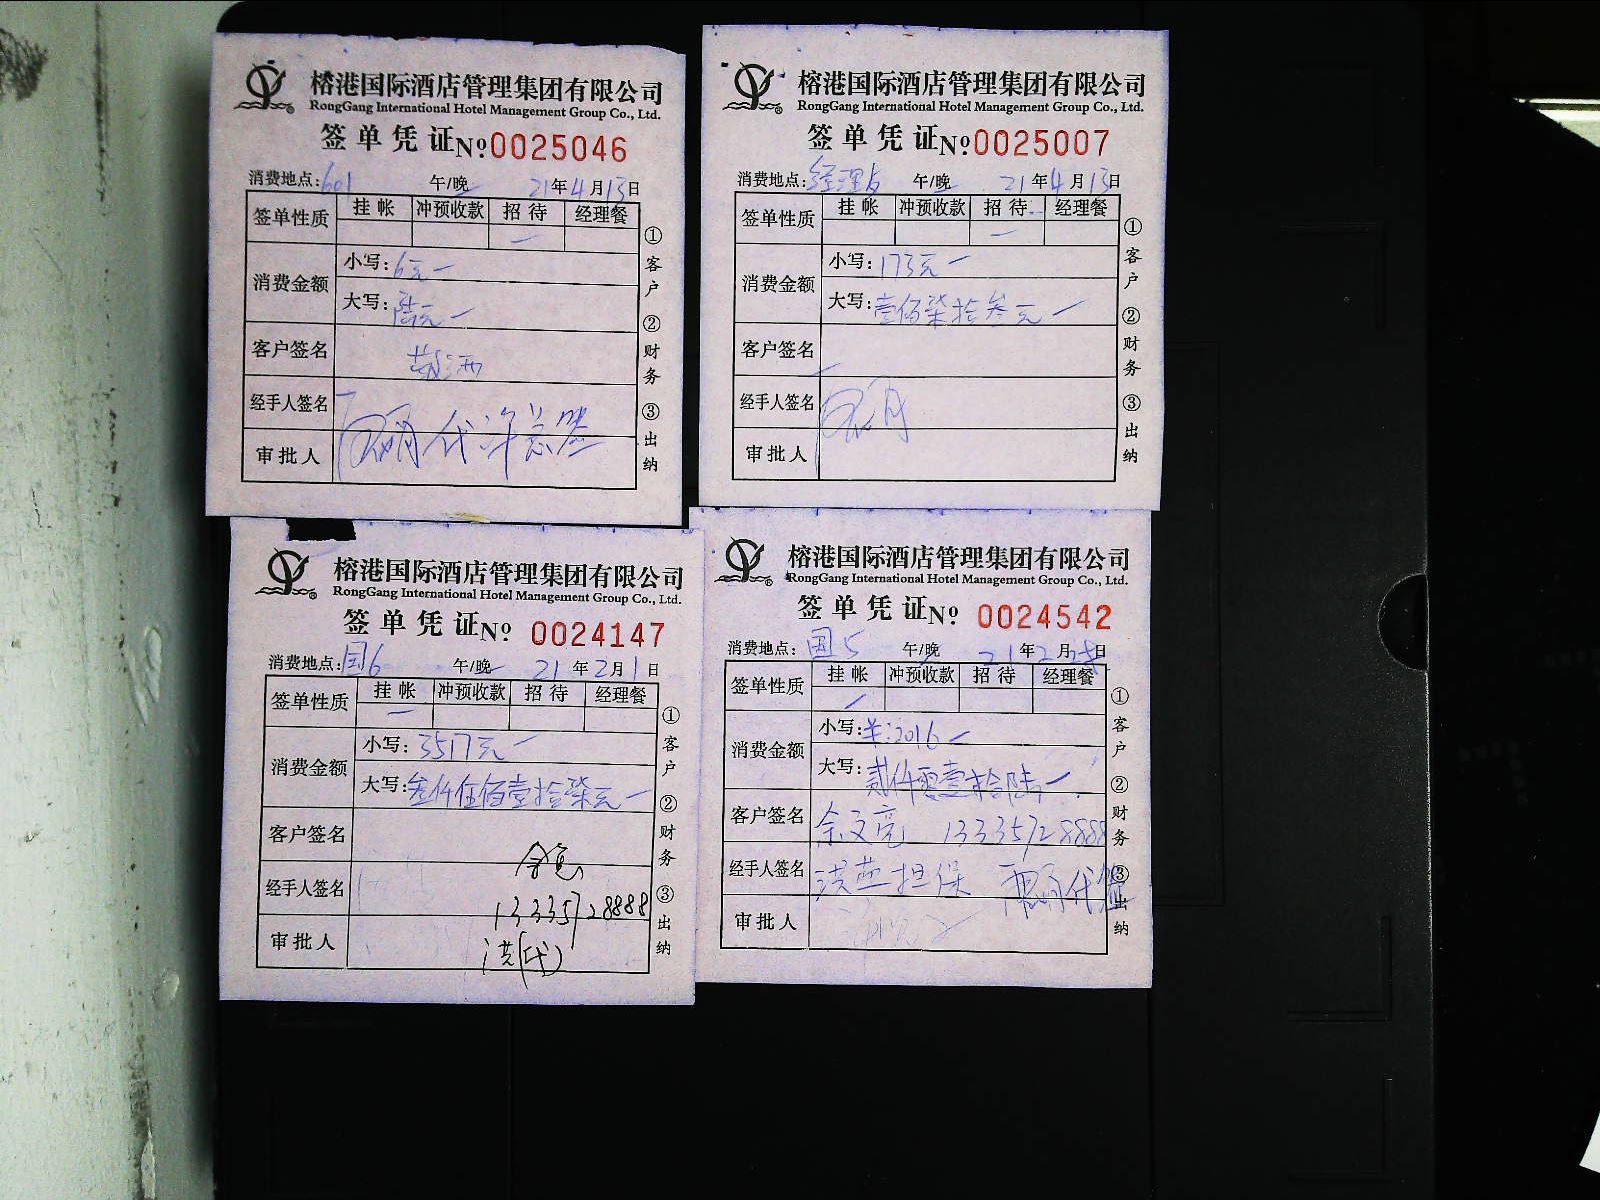 榕港国际酒店管理集团有限公司
RongGang International Hotel Management Group Co., Ltd.
签单凭证 №0025046
消费地点:601 午/晚 21年4月13日
签单性质 挂帐 冲预收款 招待 经理餐
消费金额 小写:6元
大写:陆元
客户签名
经手人签名 代许总签
审批人
①客户 ②财务 ③出纳
榕港国际酒店管理集团有限公司
RongGang International Hotel Management Group Co., Ltd.
签单凭证 №0025007
消费地点:经理 午/晚 21年4月13日
签单性质 挂帐 冲预收款 招待 经理餐
消费金额 小写:173元
大写:壹佰柒拾叁元
客户签名
经手人签名
审批人
①客户 ②财务 ③出纳
榕港国际酒店管理集团有限公司
RongGang International Hotel Management Group Co., Ltd.
签单凭证 №0024147
消费地点:国6 午/晚 21年2月1日
签单性质 挂帐 冲预收款 招待 经理餐
消费金额 小写:3517元
大写:叁仟伍佰壹拾柒元
客户签名
经手人签名 13335728888
审批人 洪(代)
①客户 ②财务 ③出纳
榕港国际酒店管理集团有限公司
RongGang International Hotel Management Group Co., Ltd.
签单凭证 №0024542
消费地点:国5 午/晚 21年2月28日
签单性质 挂帐 冲预收款 招待 经理餐
消费金额 小写:羊:2016
大写:贰仟零壹拾陆
客户签名 余文亮 13335728888
经手人签名 洪燕担保 代签
审批人
①客户 ②财务 ③出纳